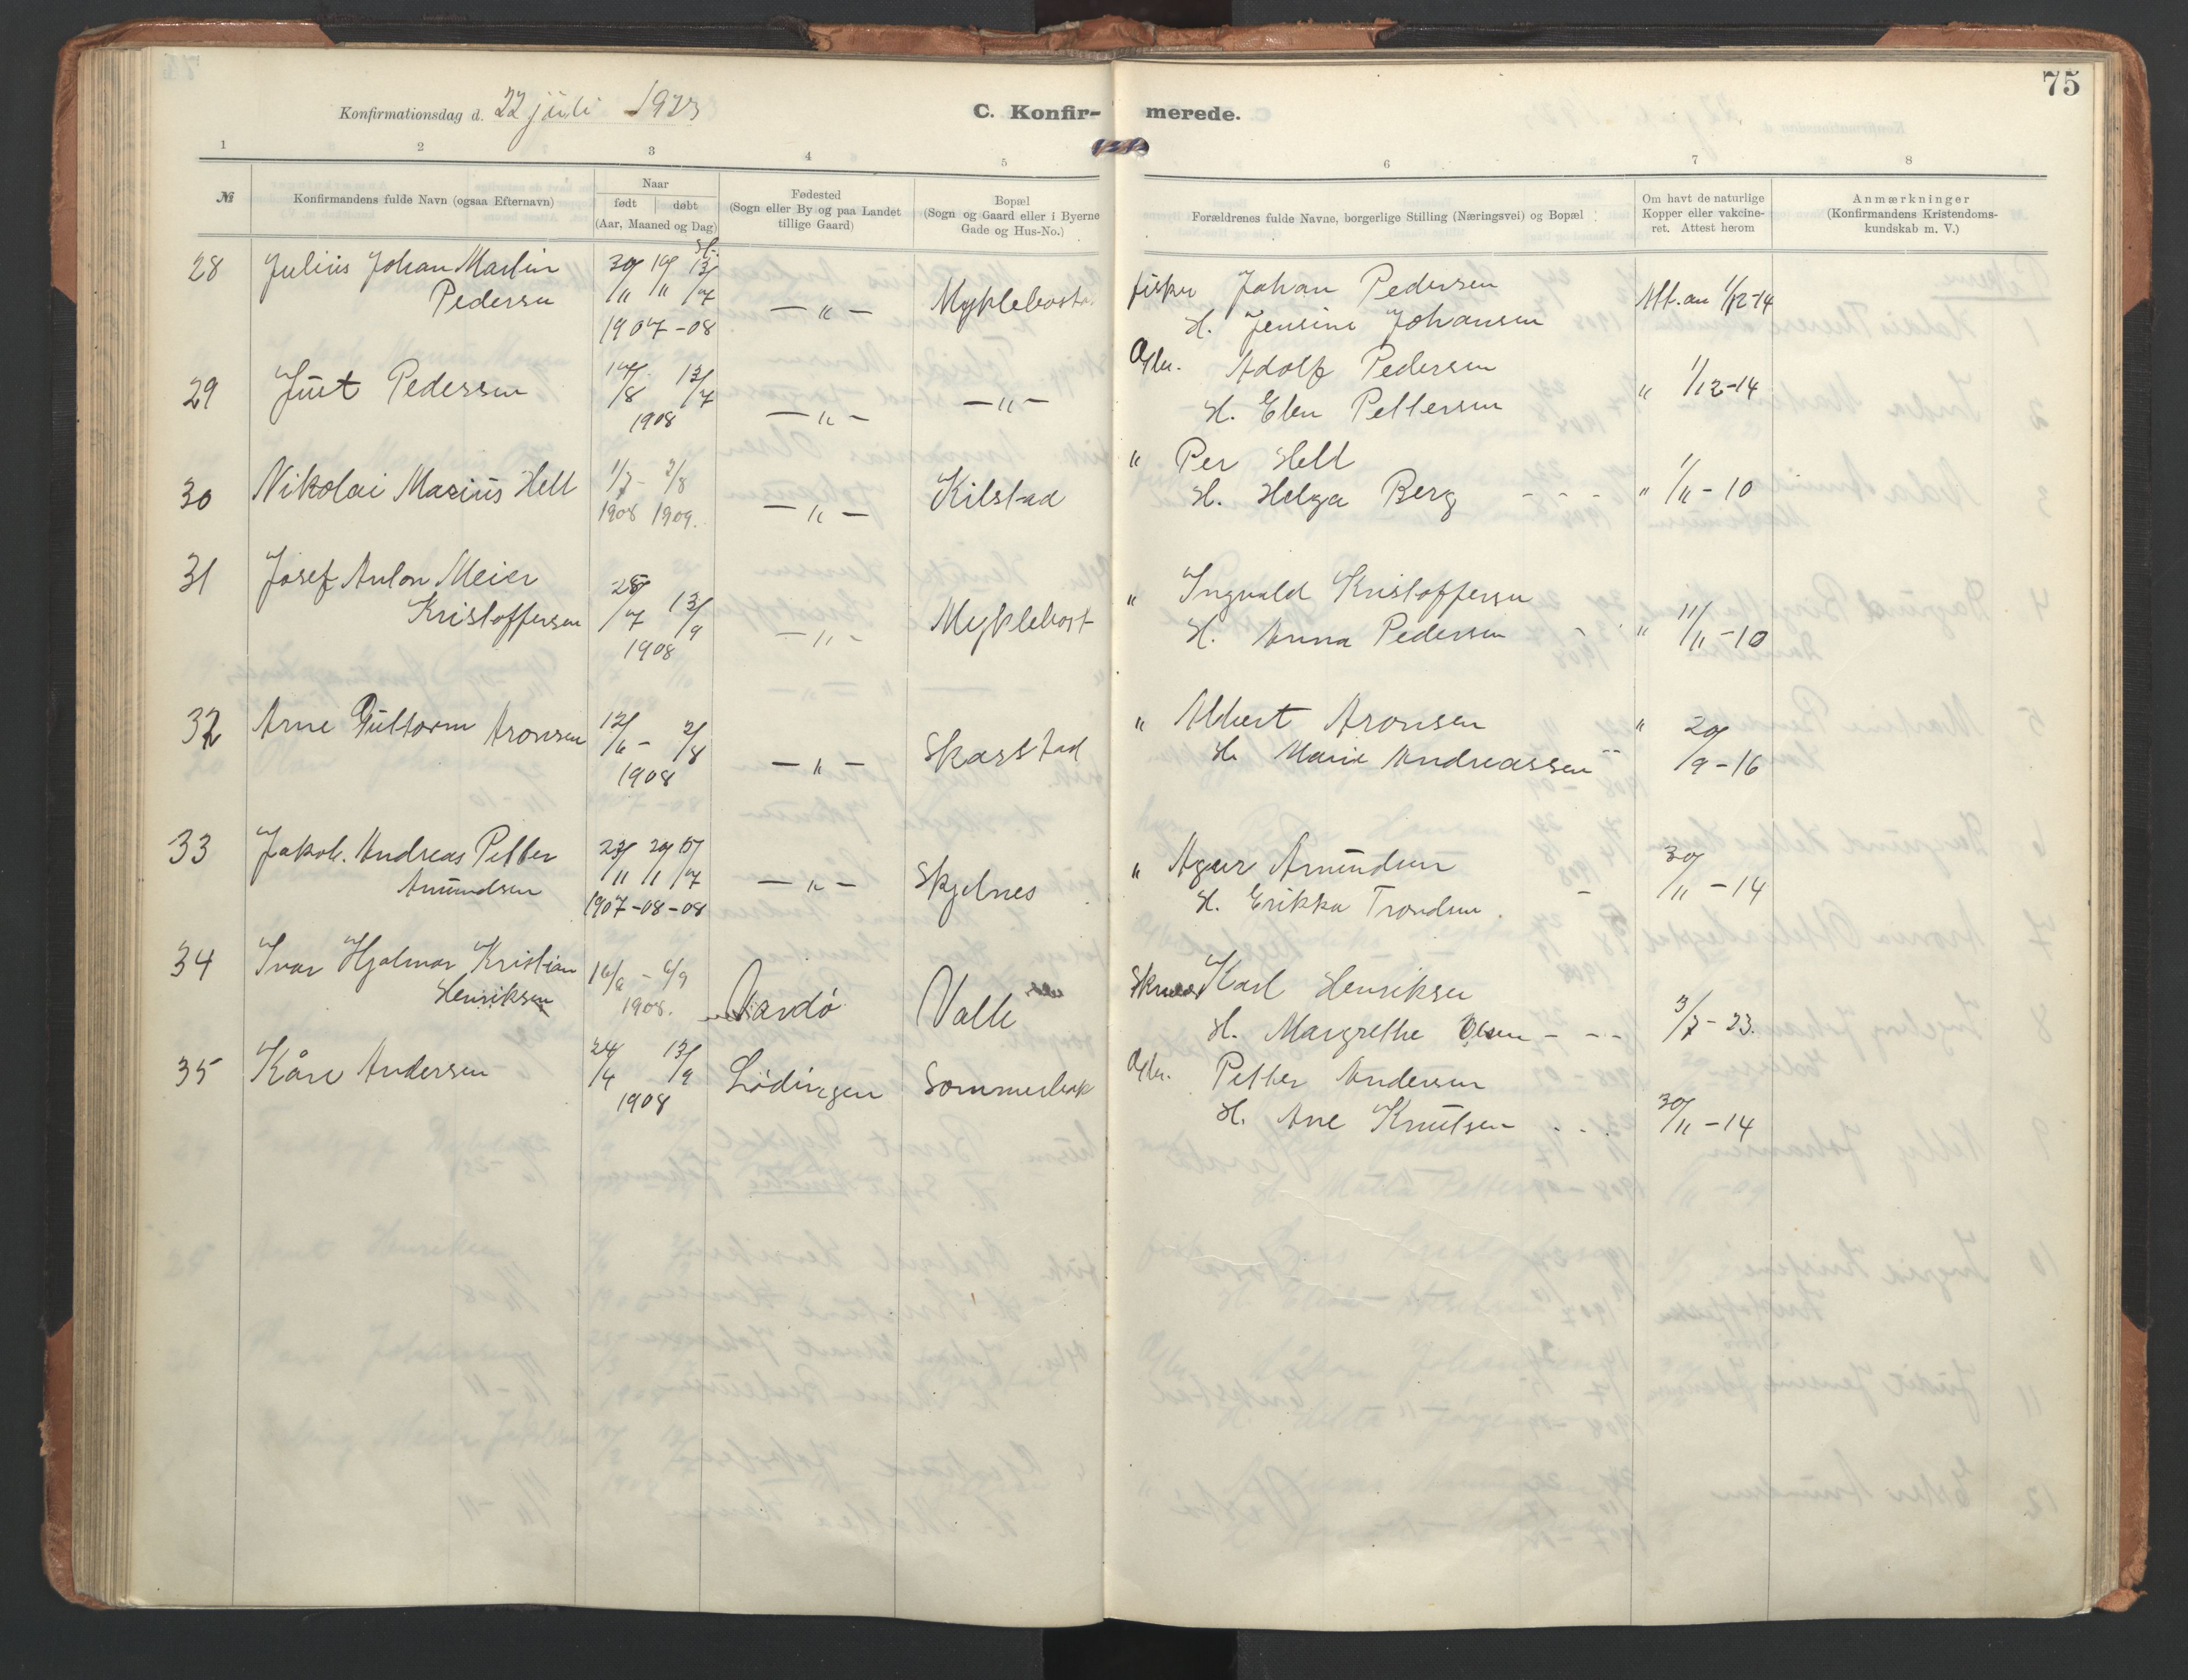 75
Konfirmationsdag d. 22 juli 1923
C. Konfir- merede.
1 2 3 4 5 6 7 8
№
Konfirmandens fulde Navn (ogsaa Efternavn)
Naar
født | døbt
(Aar, Maaned og Dag)
Fødested
(Sogn eller By og paa Landet
tillige Gaard)
Bopæl
(Sogn og Gaard eller i Byerne
Gade og Hus-No.)
Forældrenes fulde Navne, borgerlige Stilling (Næringsvei) og Bopæl
Om havt de naturlige
Kopper eller vakcine-
ret. Attest herom
Anmærkninger
(Konfirmandens Kristendoms-
kundskab m. V.)
28 Julius Johan Martin
Pedersen
30/11 19/11 13/7
1907-08
— " —
Myklebostad
fisker Johan Pedersen
H. Jensine Johansen
Att. au 1/12-14
29 Juet Pedersen
14/8 13/7
1908
— " —
— " —
Gbr. Adolf Pedersen
H. Elen Pettersen
" 1/12-14
30 Nikolai Marius Hell
1/7 - 2/8
1908 1909.
— " —
Kilstad
" Per Hell
H. Helga Berg - - -
" 1/11-10
31 Josef Anton Meier
Kristoffersen
28/7 13/9
1908
— " —
Myklebost
" Ingvald Kristoffersen
H. Anna Pedersen -
" 11/11-10
32 Arne Guttorm Aronsen
12/6 - 2/8
1908
— " —
Skarstad
" Albert Aronsen
H. Marie Andreassen --
" 20/9-16
33 Jakob. Andreas Petter
Amundsen
23/11 29/1 5/7
1907-08-08
— " —
Skjelnes
" Agur Amundsen
H. Erikka Trondsen.
- 30/11-14
34 Ivar Hjalmar Kristian
Henriksen
16/8 - 6/9
1908.
Vardö
Valle
Karl Henriksen
H. Margrethe Olsen - --
3/7-23.
35 Kåre Andersen
24/4 13/9
1908
Lödingen
Sommerbak
Gbr. Petter Andersen
H. Ane Knutsen - . .
30/11-14